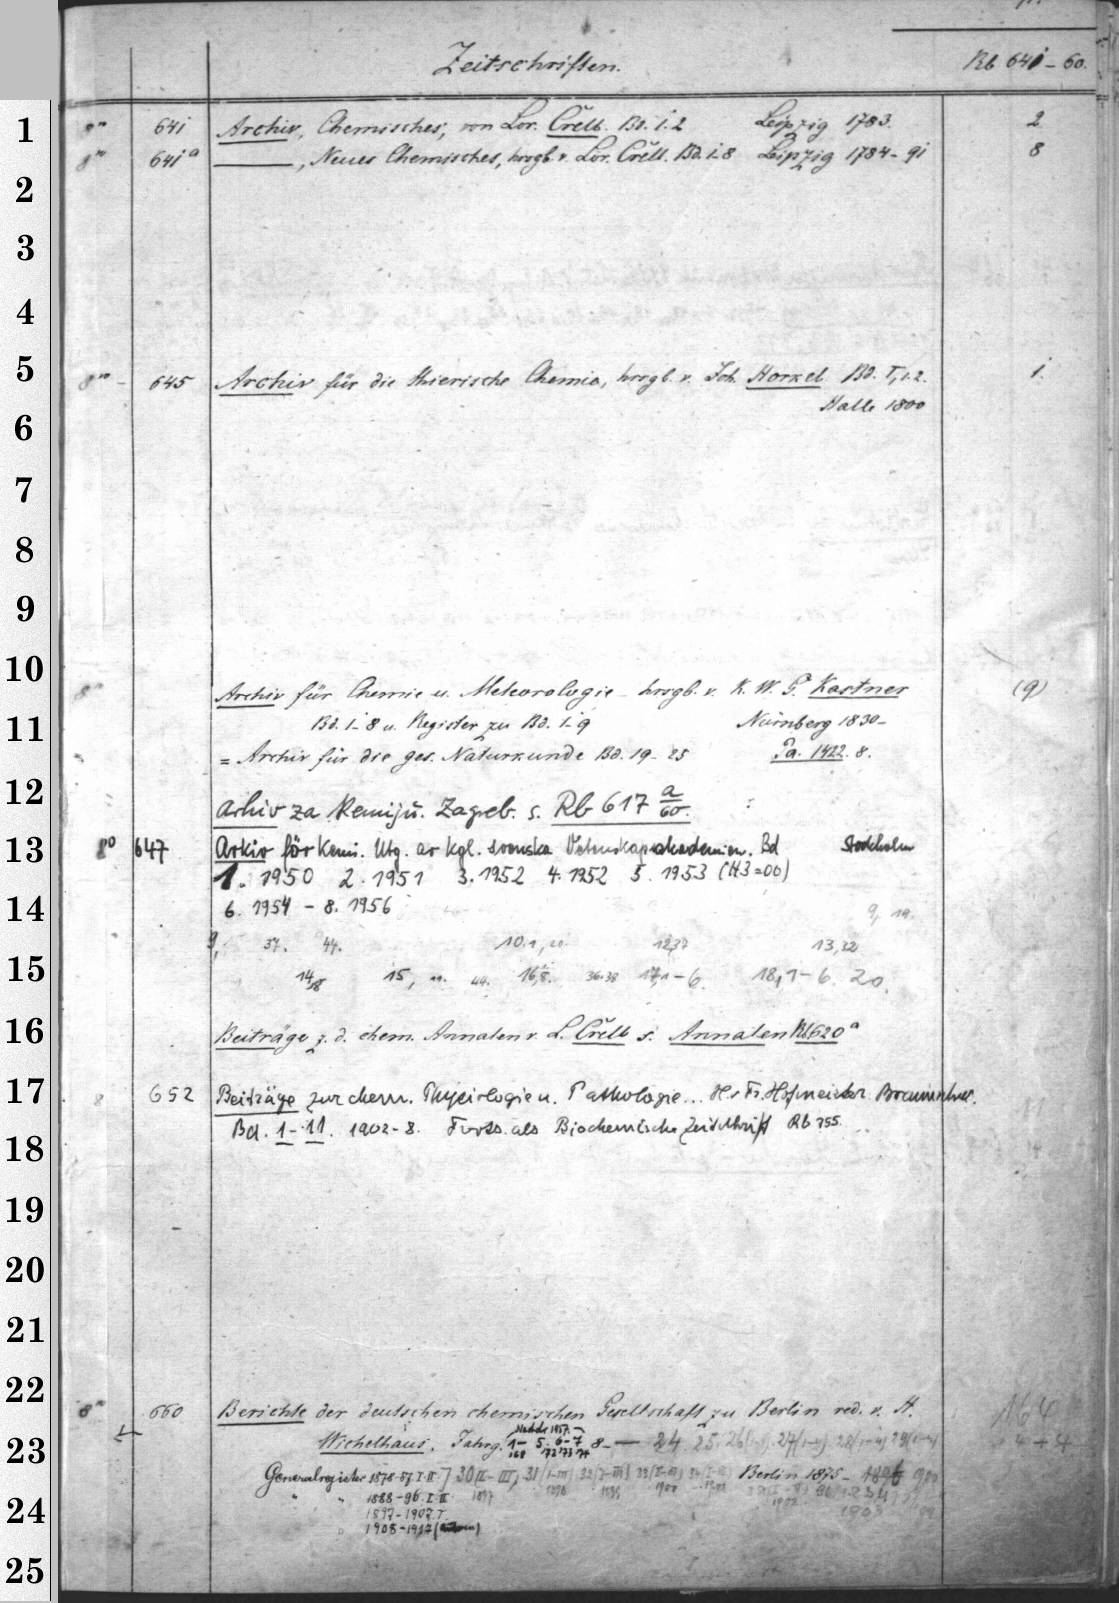 Zeitschriften. Rb 641-60.
1 8° 641 Archiv, Chemisches, von Lor. Crell. Bd. 1.2 Leipzig 1783. 2
8° 641a ———, Neues Chemisches, hrsgb. v. Lor. Crell. Bd. 1-8 Leipzig 1784-91 8
2
3
4
5 8° 645 Archiv für die thierische Chemie, hrsgb. v. Joh. Horkel Bd. I, 1.2. 1.
6 Halle 1800
7
8
9
10 8° Archiv für Chemie u. Meteorologie hrsgb. v. K. W. G. Kastner (9)
11 Bd. 1-8 u. Register zu Bd. 1-9 Nürnberg 1830-
= Archiv für die ges. Naturkunde Bd. 19-25 Pa. 1422. 8.
12 Arhiv za kemiju. Zagreb. s. Rb 617 a/60.
13 8° 647 Arkiv för Kemi. Utg. av kgl. svenska Vetenskapsakademien. Bd Stockholm
1. 1950 2. 1951 3. 1952 4. 1952 5. 1953 (H3=00)
14 6. 1954 - 8. 1956 9, 19.
9, 37. 44. 10.1, 20. 12,37 13,32
15 14,8 15, 44. 16,8. 36.38 17,1-6. 18,1-6. 20.
16 Beiträge z. d. chem. Annalen v. L. Crell s. Annalen Rb620a
17 8 652 Beiträge zur chem. Physiologie u. Pathologie... H. v. Fr. Hofmeister.
18 Bd. 1-11. 1902-8. Forts. als Biochemische Zeitschrift Rb 755.
19
20
21
22 8° 660 Berichte der deutschen chemischen Gesellschaft zu Berlin red. v. H. 164
23 Wichelhaus. Jahrg. 1- 5. 6-7 8.- 24 25. +4
Generalregister I. II Berlin 1875-
1888-96. I. II
24 1897-1907. I.
1908-1917
25